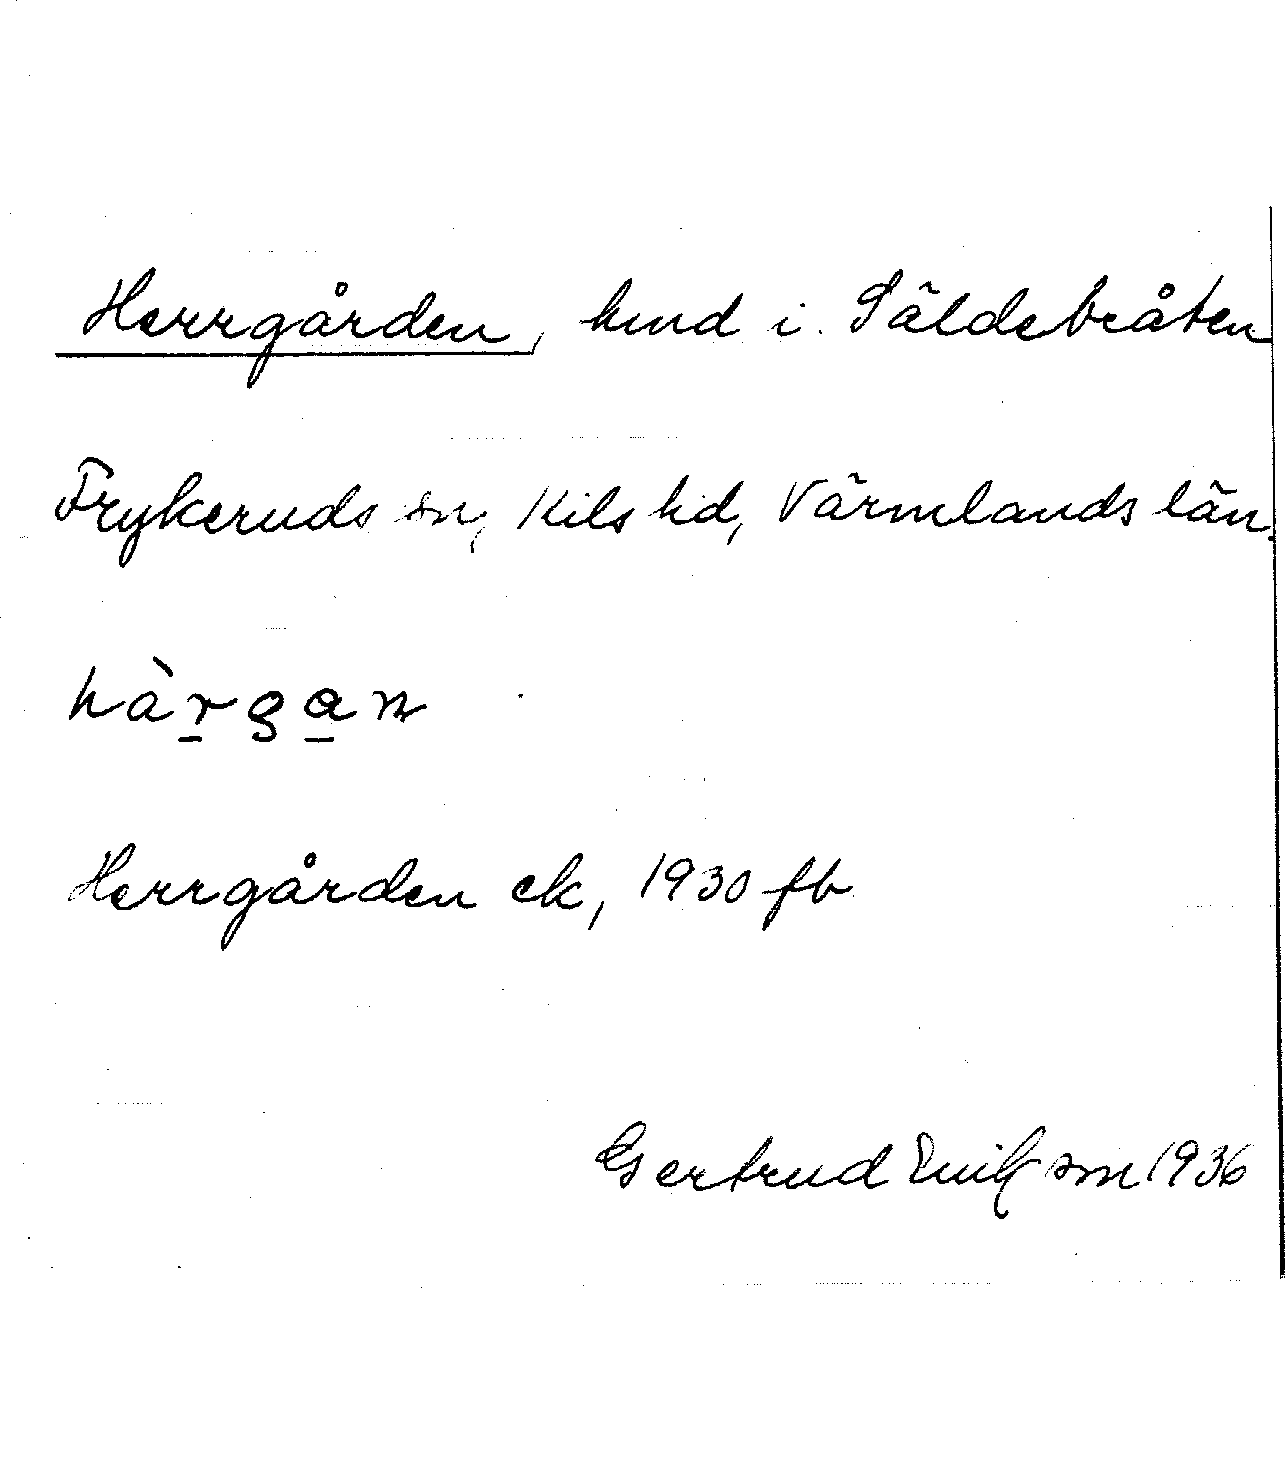 Herrgården, hmd i Säldebråten
Frykeruds sn, Kils hd, Värmlands län.
hàrgan
Herrgården ek, 1930 fb
Gertrud Emilson 1936